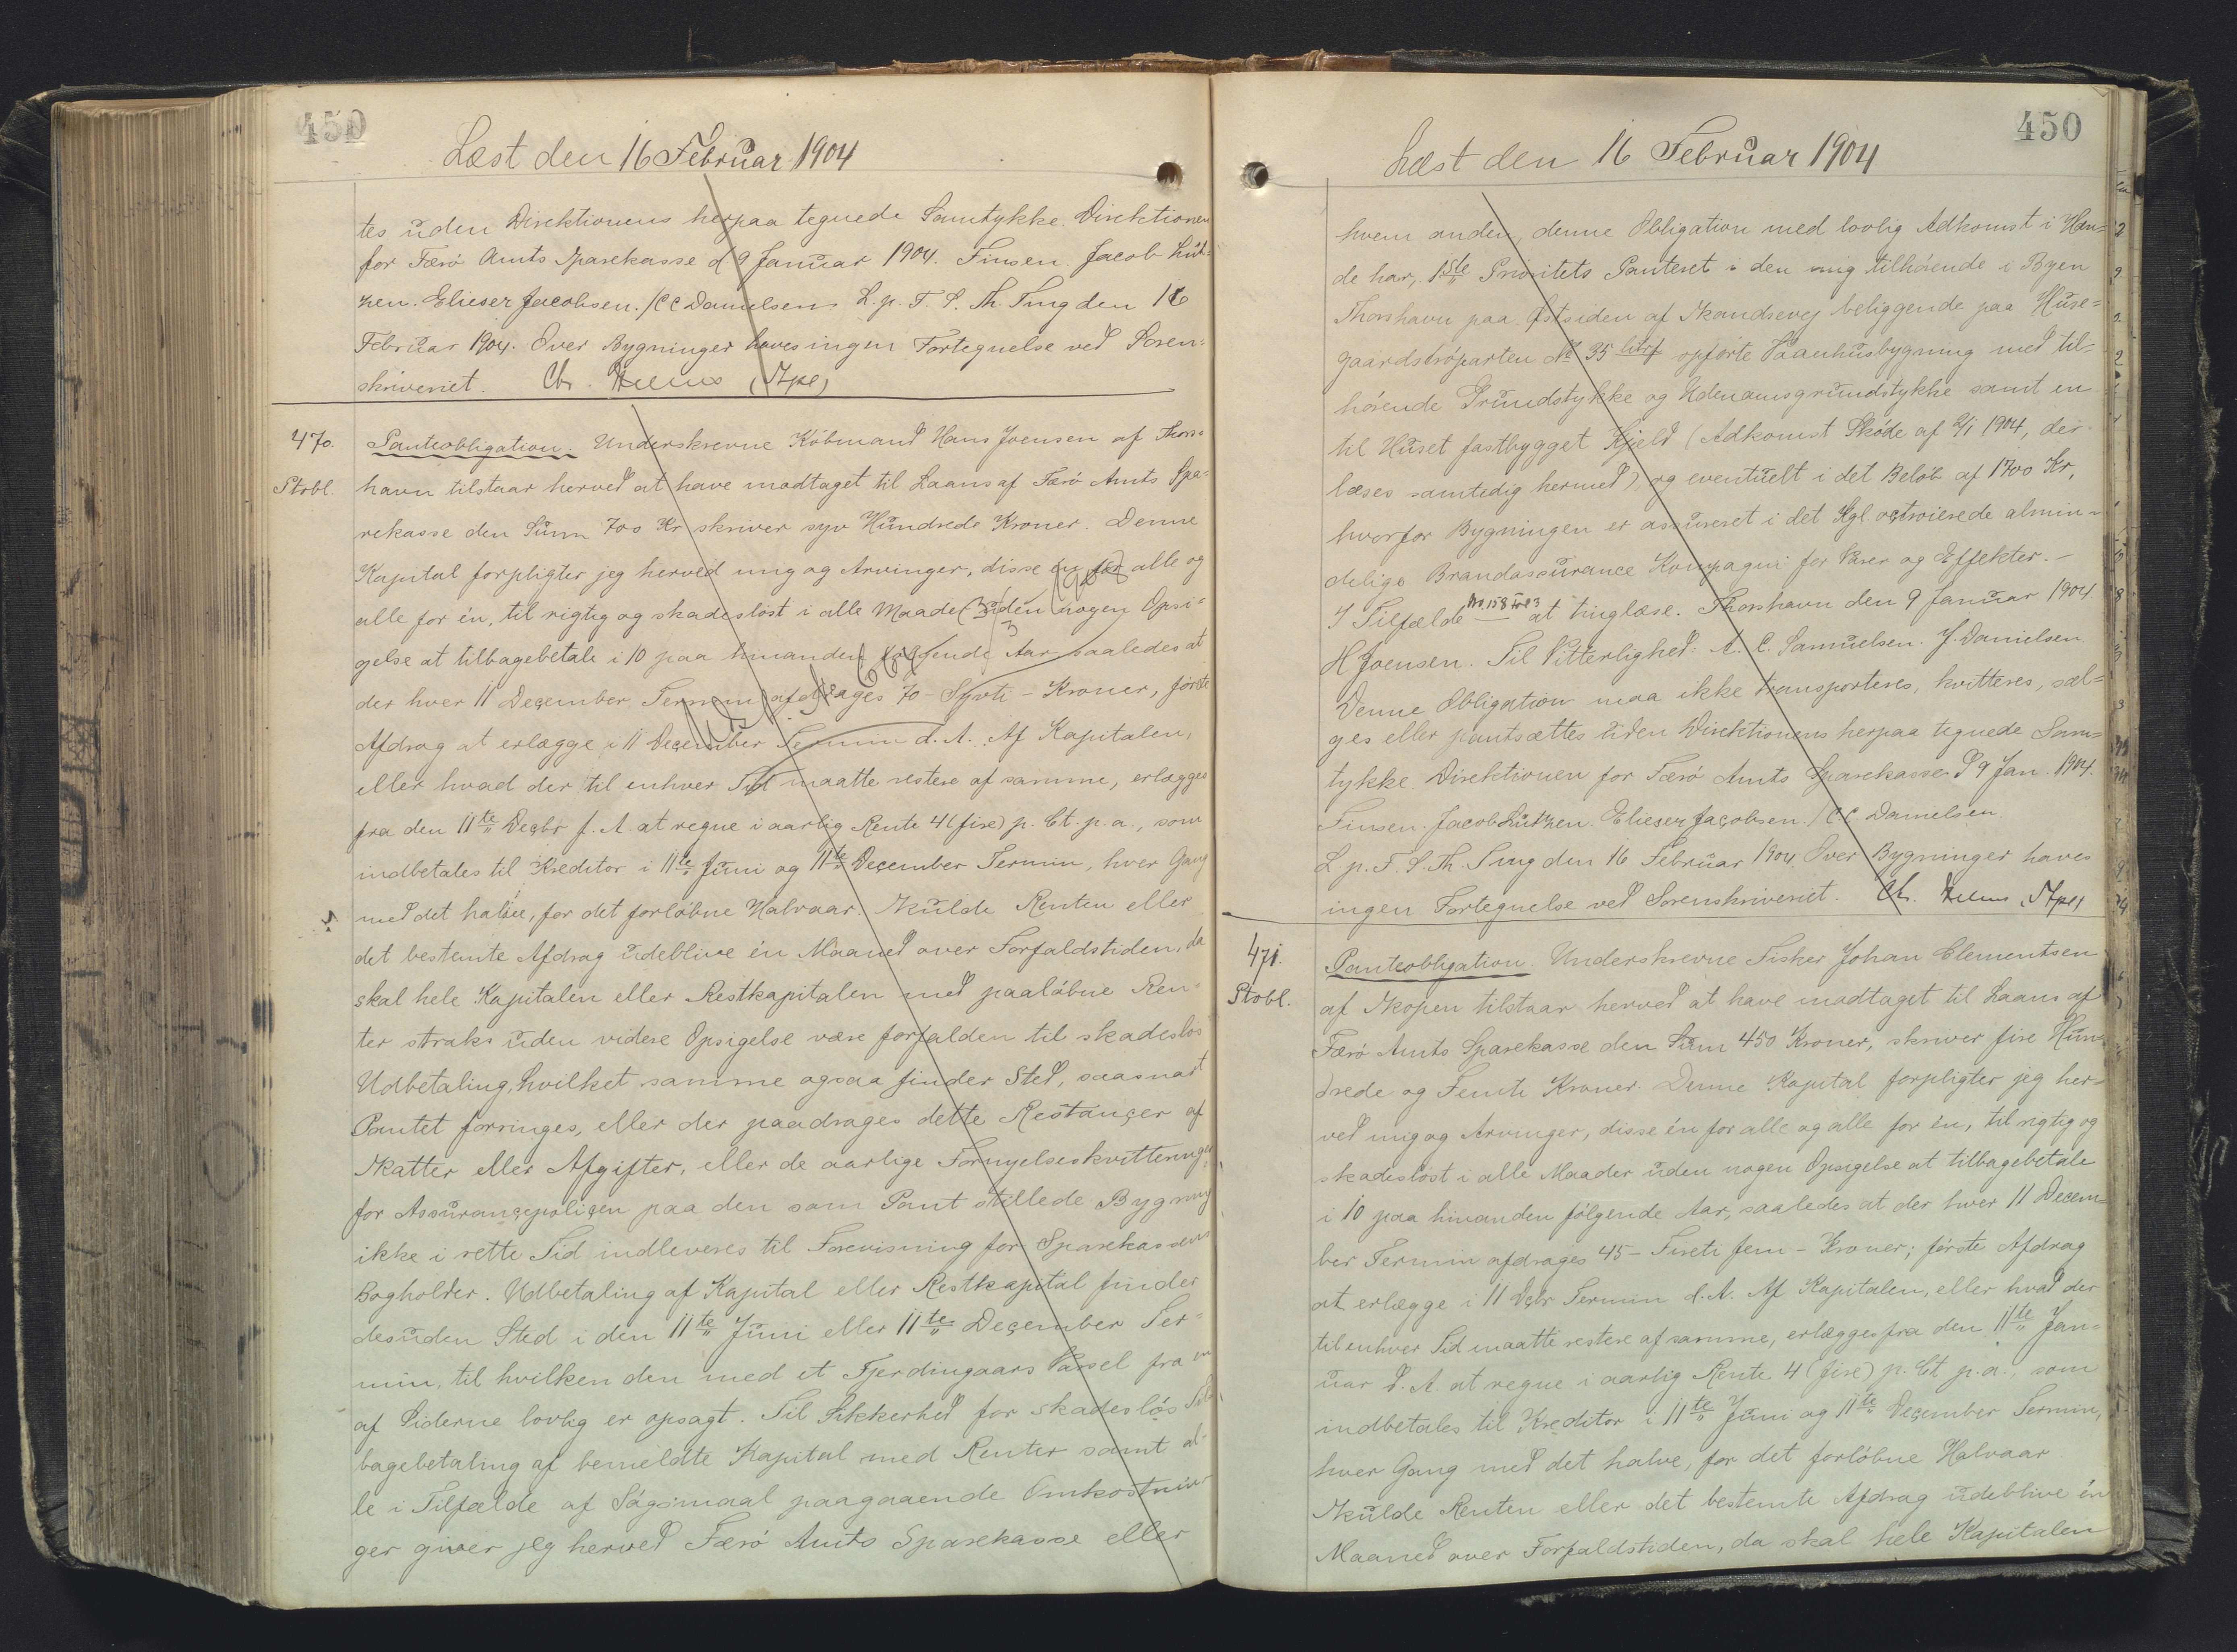 450
Læst den 16 Februar 1904
tes uden Direktionens herpaa tegnede Samtykke. Direktionen
for Færö Amts Sparekasse d 9 Januar 1904. Finsen. Jacob Lüt-
zen. Elieser Jacobsen. /CC Danielsen. L. p. T. S. Th. Ting den 16
Februar 1904. Over Bygninger haves ingen Fortegnelse ved Soren-
skriveriet.
470.
Stobl.
Panteobligation. Underskrevne Köbmand Hans Joensen af Thors-
havn tilstaar herved at have modtaget til Laans af Færö Amts Spa-
rekasse den Sum 700 Kr skriver syv Hundrede Kroner. Denne
Kapital forpligter jeg herved mig og Arvinger, disse én for alle og
alle for én, til rigtig og skadeslöst i alle Maader uden nogen Opsi-
gelse at tilbagebetale i 10 paa hinanden følgende Aar saaledes at
der hver 11 December Termin afdrages 70 - Syvti - Kroner, förste
Afdrag at erlægge i 11 December Termin d. A. Af Kapitalen,
eller hvad der til enhver Tid maatte restere af samme, erlægges
fra den 11te Decbr f. A. at regne i aarlig Rente 4 (fire) p. Ct. p. a., som
indbetales til Kreditor i 11te Juni og 11te December Termin, hver Gang
med det halve, for det forløbne Halvaar. Skulde Renten eller
det bestemte Afdrag udeblive én Maaned over Forfaldstiden, da
skal hele Kapitalen eller Restkapitalen med paaløbne Ren-
ter straks uden videre Opsigelse være forfalden til skadeslös
Udbetaling, hvilket samme ogsaa finder Sted, saasnart
Pantet forringes, eller der paadrages dette Restancer af
Skatter eller Afgifter, eller de aarlige Fornyelseskvitteringer
for Assurancepolicen paa den som Pant stillede Bygning
ikke i rette Tid indleveres til Forevisning for Sparekassens
Bogholder. Udbetaling af Kapital eller Restkapital finder
desuden Sted i den 11te Juni eller 11te December Ter-
min, til hvilken den med et Fjerdingaars Varsel fra en
af Siderne lovlig er opsagt. Til Sikkerhed for skadeslös Til-
bagebetaling af bemeldte Kapital med Renter samt al-
le i Tilfælde af Sägsmaal paagaaende Omkostnin-
ger giver jeg herved Færö Amts Sparekasse eller
450
Læst den 16 Februar 1904
hvem anden, denne Obligation med lovlig Adkomst i Hæn-
de har, 1ste Prioritets Panteret i den mig tilhörende i Byen
Thorshavn paa Østsiden af Skandsevej beliggende paa Huse-
gaardströparten № 35 litr f opförte Vaanhusbygning med til-
hörende Grundstykke og Udenomsgrundstykke samt en
til Huset fastbygget Hjeld (Adkomst Sköde af 2/1 1904, der
læses samtidig hermed), og eventuelt i det Belöb af 1700 Kr,
hvorfor Bygningen er assureret i det Kgl. octroierede almin-
delige Brandassurance Kompagni for Varer og Effekter. -
I Tilfælde No 158 Fol 3 at tinglæse. Thorshavn den 9 Januar 1904
H Joensen. Til Vitterlighed: A. C. Samuelsen. J. Danielsen.
Denne Obligation maa ikke transporteres, kvitteres, sæl-
ges eller pantsættes uden Direktionens herpaa tegnede Sam-
tykke. Direktionen for Færö Amts Sparekasse d 9 Jan. 1904.
Finsen. Jacob Lützen. Elieser Jacobsen. /CC Danielsen.
L p. T. S. Th. Ting den 16 Februar 1904 Over Bygninger haves
ingen Fortegnelse ved Sorenskriveriet.
471.
Stobl.
Panteobligation. Underskrevne Fisker Johan Clementsen
af Skopen tilstaar herved at have modtaget til Laans af
Færö Amts Sparekasse den Sum 450 Kroner, skriver fire Hun-
drede og Femti Kroner. Denne Kapital forpligter jeg her-
ved mig og Arvinger, disse én for alle og alle for én, til rigtig og
skadeslöst i alle Maader uden nogen Opsigelse at tilbagebetale
i 10 paa hinanden fölgende Aar, saaledes at der hver 11 Decem-
ber Termin afdrages 45 - Firti fem - Kroner; förste Afdrag
at erlægge i 11 Dcbr Termin d. A. Af Kapitalen, eller hvad der
til enhver Tid maatte restere af samme, erlægges fra den 11te Jan-
uar d. A. at regne i aarlig Rente 4 (fire) p. Ct p. a., som
indbetales til Kreditor i 11te Juni og 11te December Termin,
hver Gang med det halve, for det forløbne Halvaar
Skulde Renten eller det bestemte Afdrag udeblive én
Maaned over Forfaldstiden, da skal hele Kapitalen